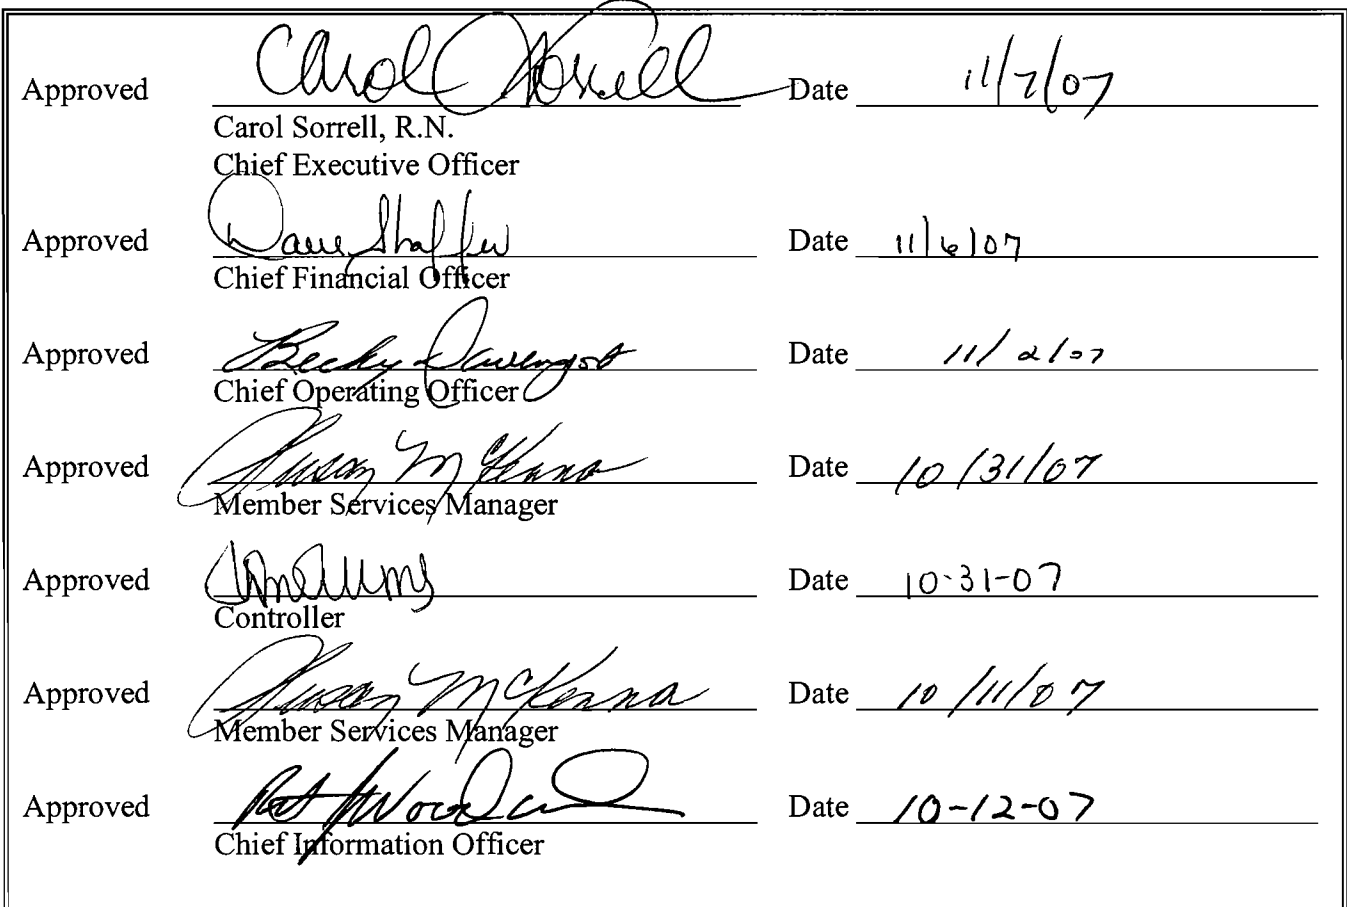 Approved Carol Sorrell Date 11/7/07
Carol Sorrell, R.N.
Chief Executive Officer
Approved Dave Shaffer Date 11/6/07
Chief Financial Officer
Approved Becky Davenport Date 11/2/07
Chief Operating Officer
Approved Susan McKenna Date 10/31/07
Member Services Manager
Approved Date 10-31-07
Controller
Approved Susan McKenna Date 10/11/07
Member Services Manager
Approved Date 10-12-07
Chief Information Officer